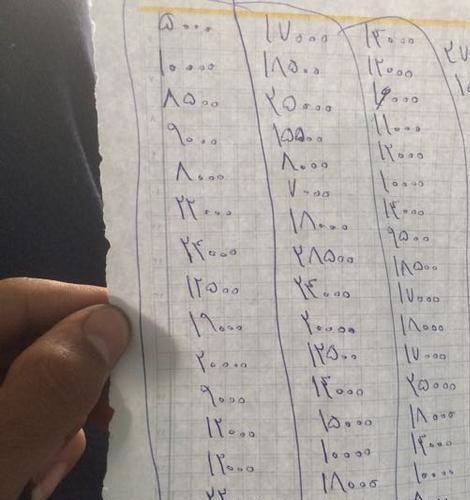 ۵۰۰۰
۱۰۰۰۰
۸۵۰۰
۹۰۰۰
۸۰۰۰
۲۲۰۰۰
۲۴۰۰۰
۱۲۵۰۰
۱۹۰۰۰
۲۰۰۰۰
۹۰۰۰
۱۲۰۰۰
۱۲۰۰۰
۱۷۰۰۰
۱۸۵۰۰
۲۵۰۰۰
۱۵۵۰۰
۸۰۰۰
۷۰۰۰
۱۸۰۰۰
۲۸۵۰۰
۲۴۰۰۰
۲۰۰۰۰
۱۲۵۰۰
۱۴۰۰۰
۱۵۰۰۰
۱۰۰۰۰
۱۸۰۰۰
۱۴۰۰۰
۱۲۰۰۰
۱۱۰۰۰
۱۲۰۰۰
۱۰۰۰۰
۱۴۰۰۰
۹۵۰۰
۱۸۵۰۰
۱۷۰۰۰
۱۸۰۰۰
۱۷۰۰۰
۲۵۰۰۰
۱۸۰۰۰
۱۴۰۰۰
۱۰۰۰۰